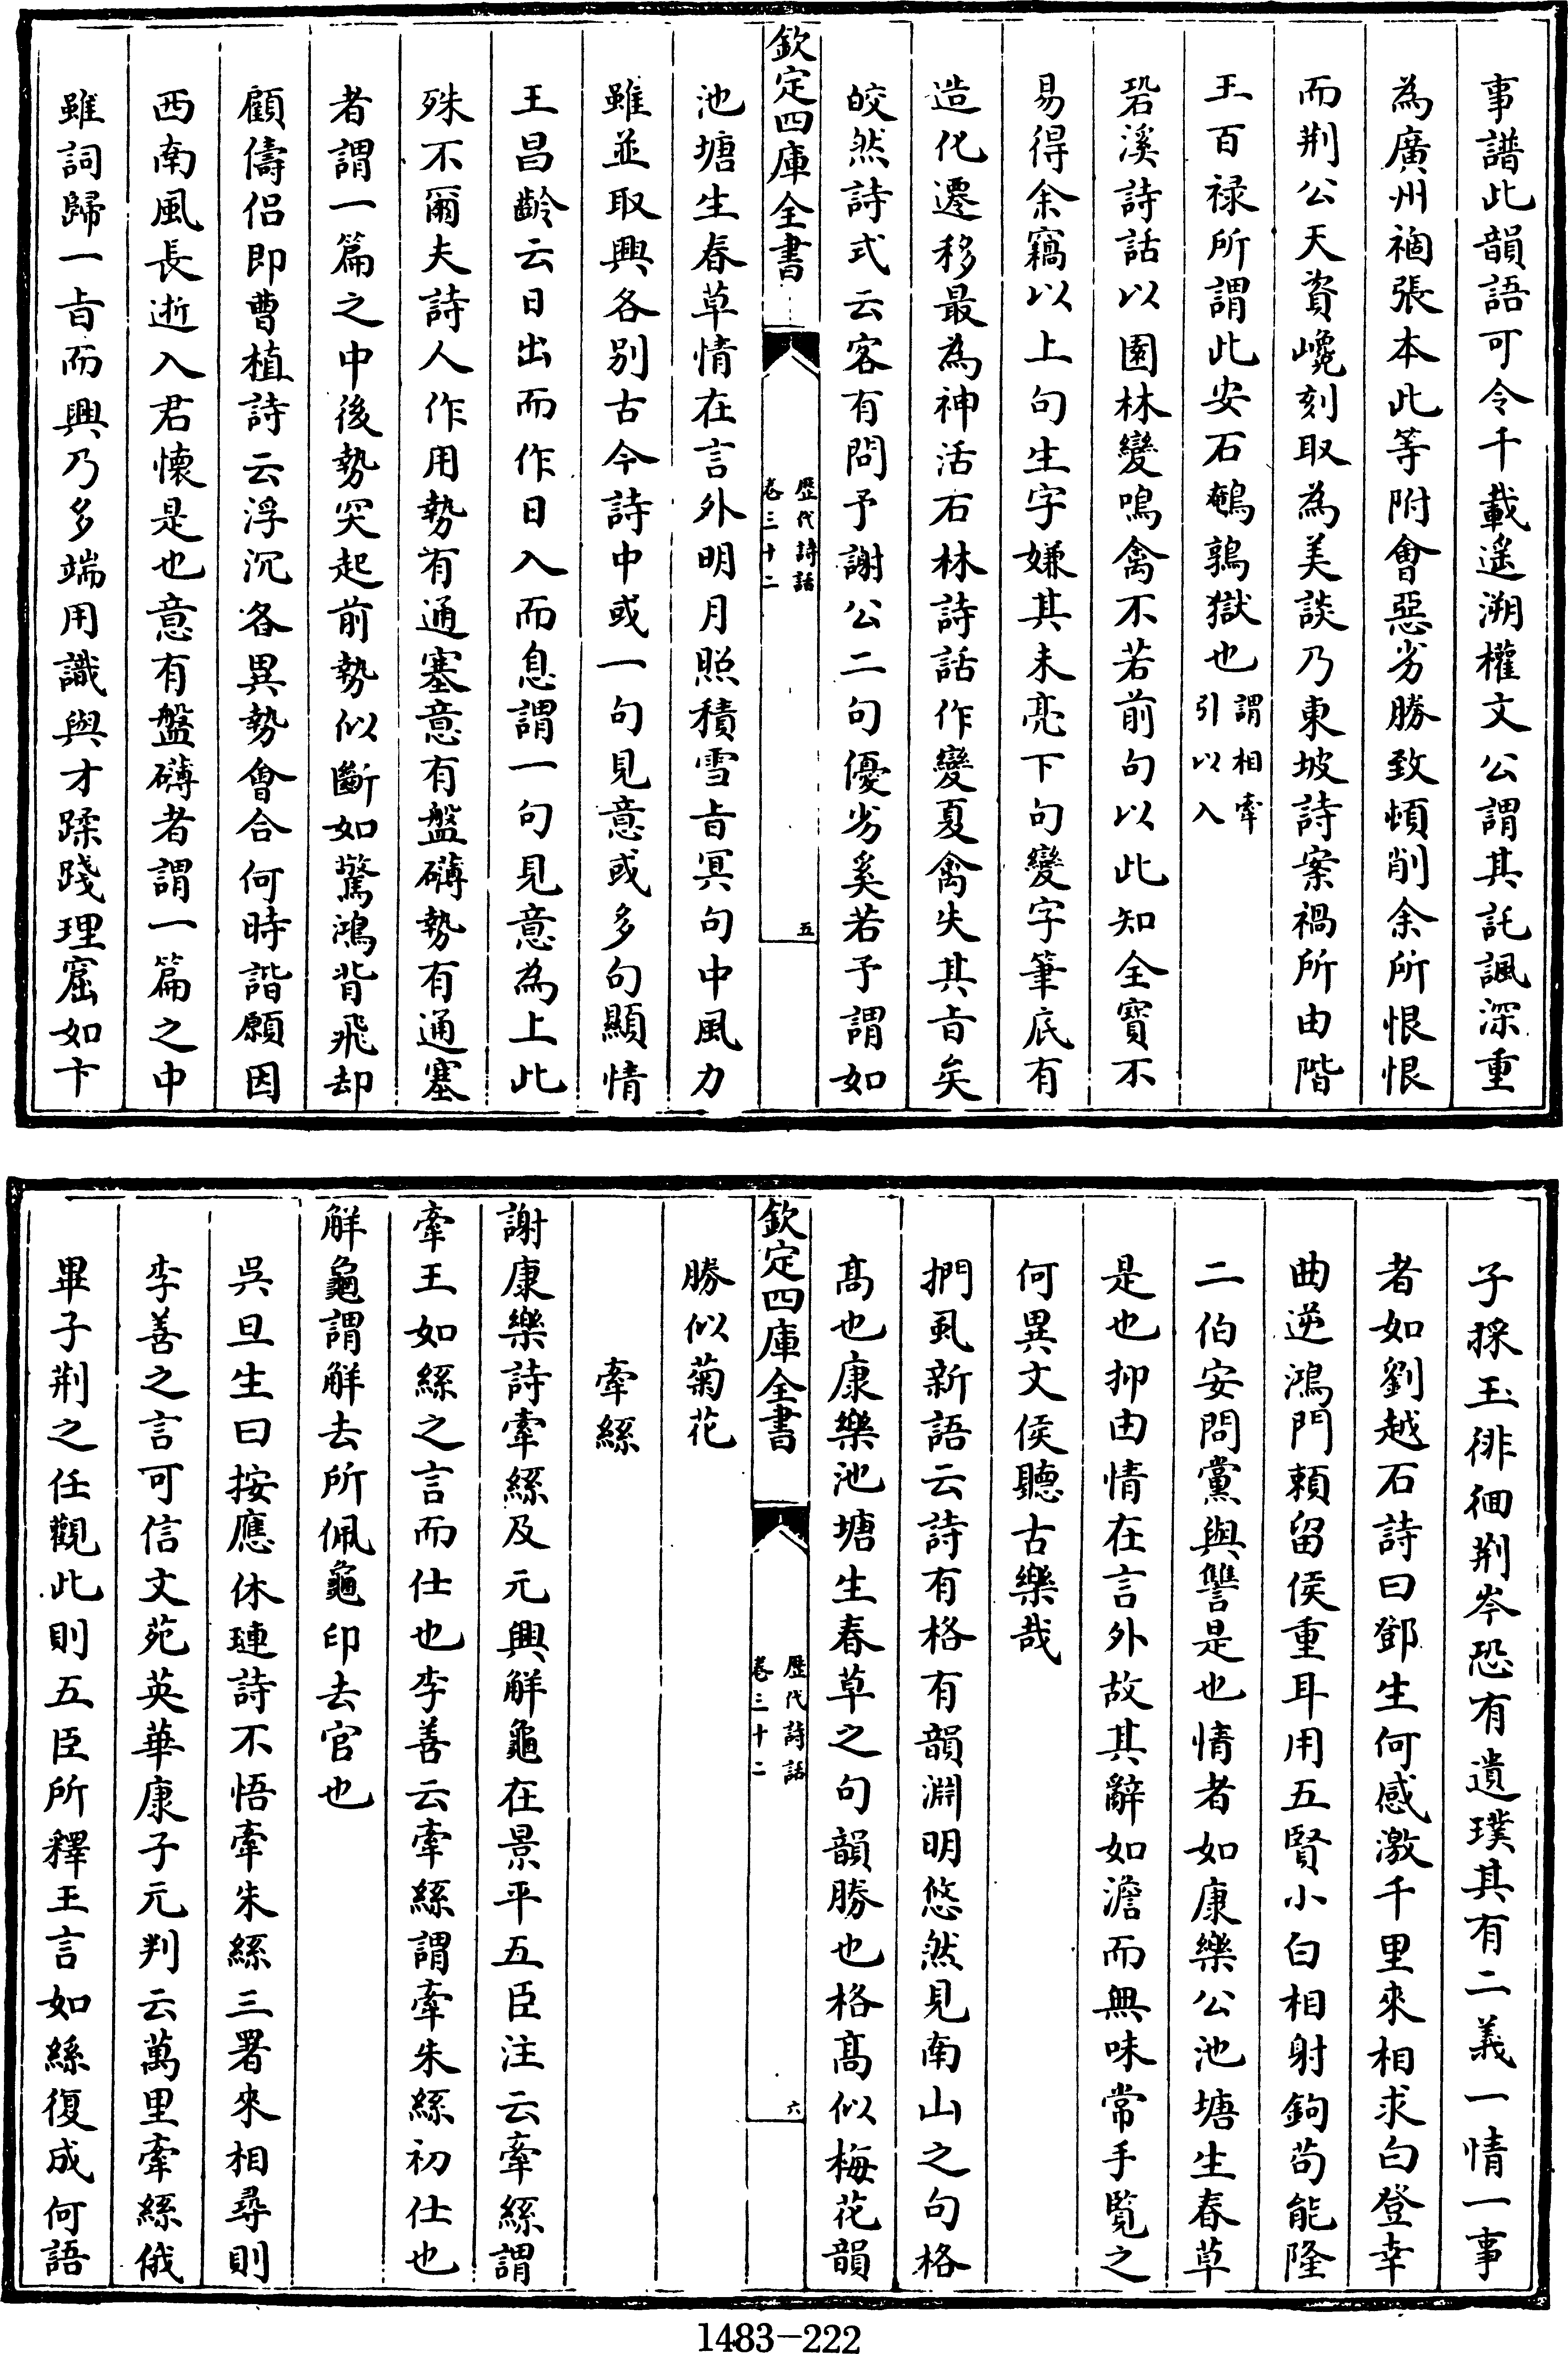 事譜此韻語可令千載遥溯權文公謂其託諷深重
為廣州禍張本此等附會惡劣勝致頓削余所恨恨
而荆公天資巉刻取為美談乃東坡詩案禍所由階
王百禄所謂此安石鵪鶉獄也謂相牽
引以入
碧溪詩話以園林變鳴禽不若前句以此知全寳不
易得余竊以上句生字嫌其未亮下句變字筆底有
造化遷移最為神活石林詩話作變夏禽失其㫖矣
皎然詩式云客有問予謝公二句優劣奚若予謂如
欽定四庫全書
歴代詩話
卷三十二
五
池塘生春草情在言外明月照積雪㫖冥句中風力
雖並取興各别古今詩中或一句見意或多句顯情
王昌齡云日出而作日入而息謂一句見意為上此
殊不爾夫詩人作用勢有通塞意有盤礴勢有通塞
者謂一篇之中後勢突起前勢似斷如驚鴻背飛却
顧儔侣即曹植詩云浮沉各異勢會合何時諧願因
西南風長逝入君懐是也意有盤礴者謂一篇之中
雖詞歸一㫖而興乃多端用識與才蹂踐理窟如卞
子採玉徘徊荆岑恐有遺璞其有二義一情一事
者如劉越石詩曰鄧生何感激千里來相求白登幸
曲逆鴻門頼留侯重耳用五賢小白相射鉤苟能隆
二伯安問黨與讐是也情者如康樂公池塘生春草
是也抑由情在言外故其辭如澹而無味常手覧之
何異文侯聽古樂哉
捫虱新語云詩有格有韻淵明悠然見南山之句格
髙也康樂池塘生春草之句韻勝也格髙似梅花韻
欽定四庫全書
歴代詩話
卷三十二
六
勝似菊花
牽絲
謝康樂詩牽絲及元興解龜在景平五臣注云牽絲謂
牽王如絲之言而仕也李善云牽絲謂牽朱絲初仕也
解龜謂解去所佩龜印去官也
吳旦生曰按應休璉詩不悟牽朱絲三署來相尋則
李善之言可信文苑英華康子元判云萬里牽絲俄
畢子荆之任觀此則五臣所釋王言如絲復成何語
1483-222